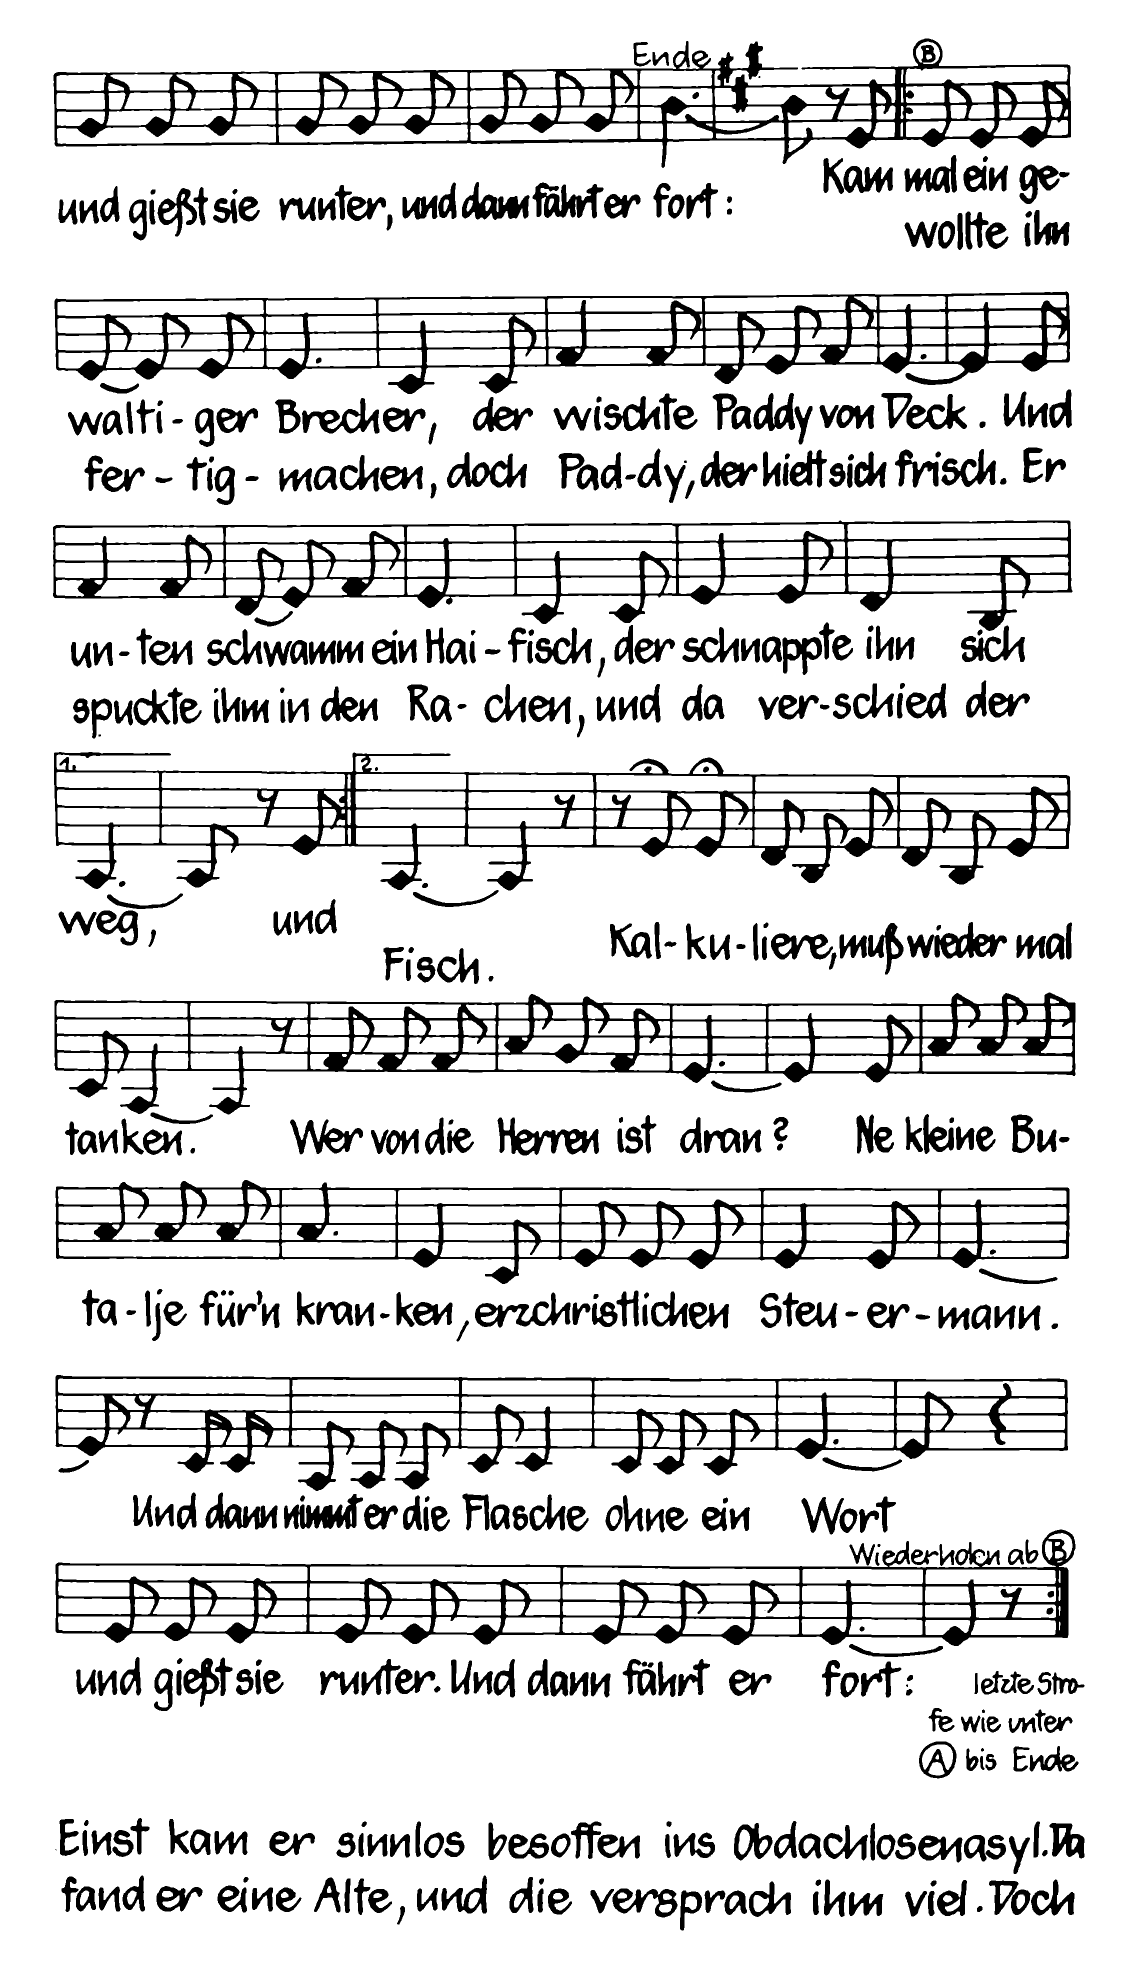 Ende B
und gießt sie runter, und dann fährt er fort: Kam mal ein ge-
wollte ihn
walti-ger Brecher, der wischte Paddy von Deck. Und
fer-tig-machen, doch Pad-dy, der hielt sich frisch. Er
un-ten schwamm ein Hai-fisch, der schnappte ihn sich
spuckte ihm in den Ra-chen, und da ver-schied der
1. 2.
weg, und
Fisch. Kal-ku-liere, muß wieder mal
tanken. Wer von die Herren ist dran? Ne kleine Bu-
ta-lje für'n kran-ken, erzchristlichen Steu-er-mann.
Und dann nimmt er die Flasche ohne ein Wort
Wiederholen ab B
und gießt sie runter. Und dann fährt er fort: letzte Stro-
fe wie unter
A bis Ende
Einst kam er sinnlos besoffen ins Obdachlosenasyl. Da
fand er eine Alte, und die versprach ihm viel. Doch